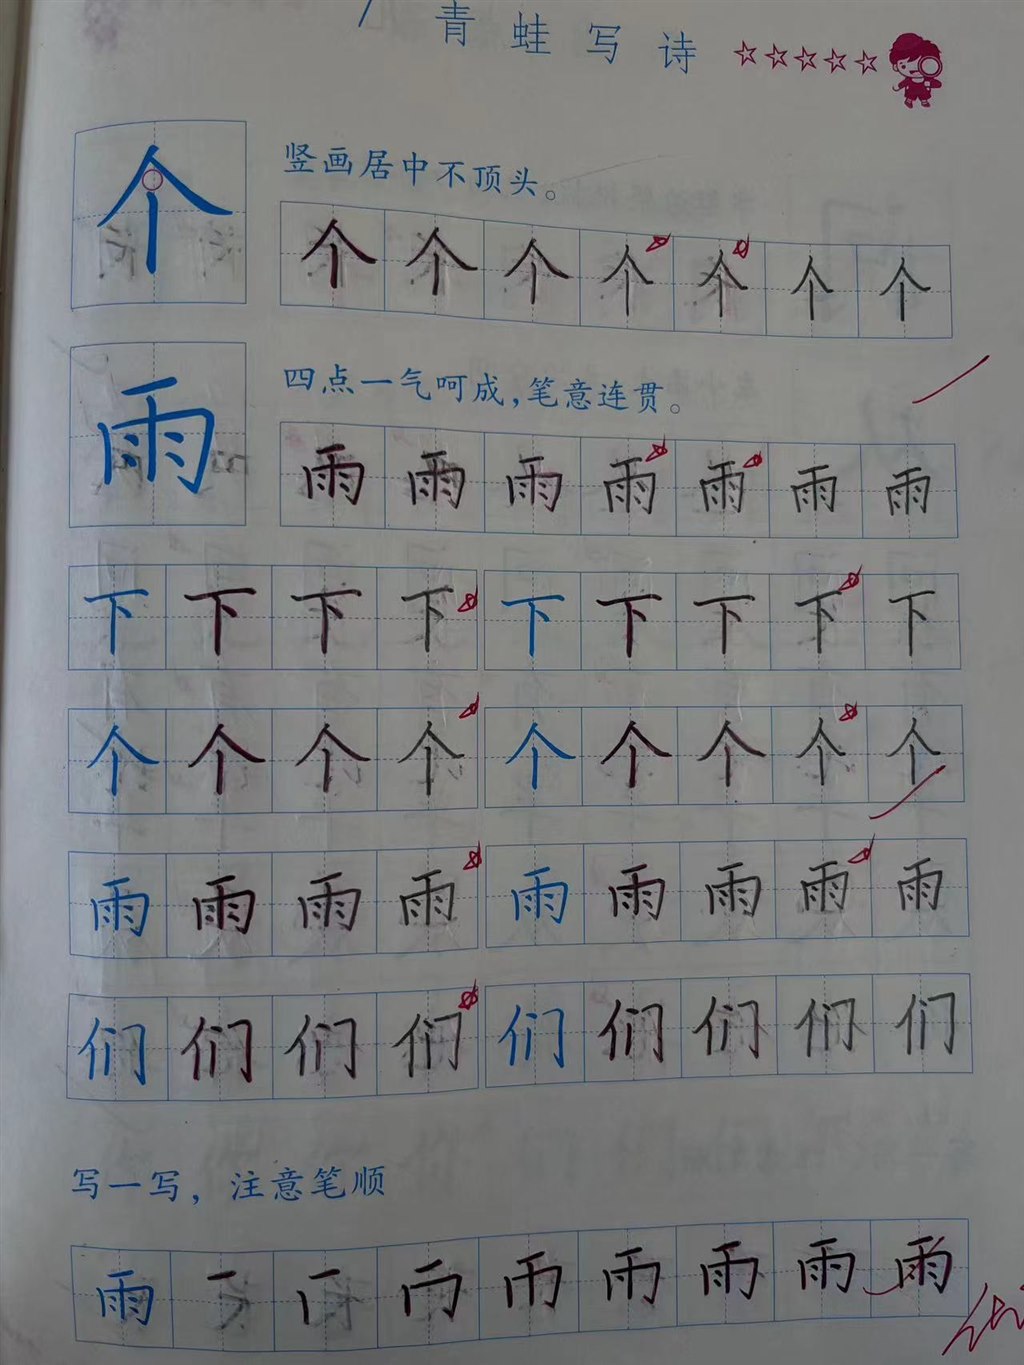 青蛙写诗
个
竖画居中不顶头。
个个个个个个个
雨
四点一气呵成，笔意连贯。
雨雨雨雨雨雨雨
下下下下下下下下下
个个个个个个个个个
雨雨雨雨雨雨雨雨雨
们们们们们们们们们
写一写，注意笔顺
雨
雨